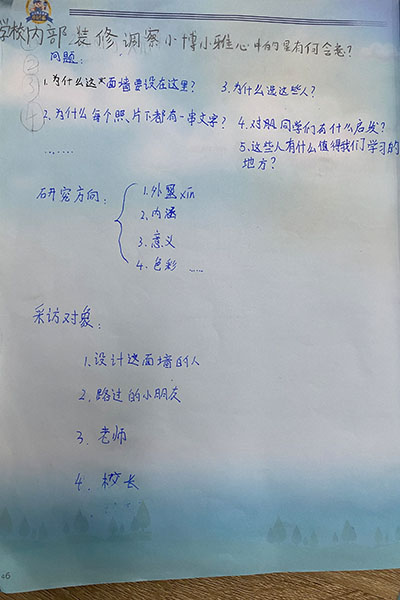 学校内部装修调察小博小雅心中的星有何含意?
② 问题:
③
④
1.为什么这面墙要设在这里? 3.为什么选这些人?
2.为什么每个照片下都有一串文字? 4.对同学们有什么启发?
5.这些人有什么值得我们学习的地方?
……
研究方向:
1.外墨xin
2.内涵
3.意义
4.色彩 ……
采访对象:
1.设计这面墙的人
2.路过的小朋友
3.老师
4.校长